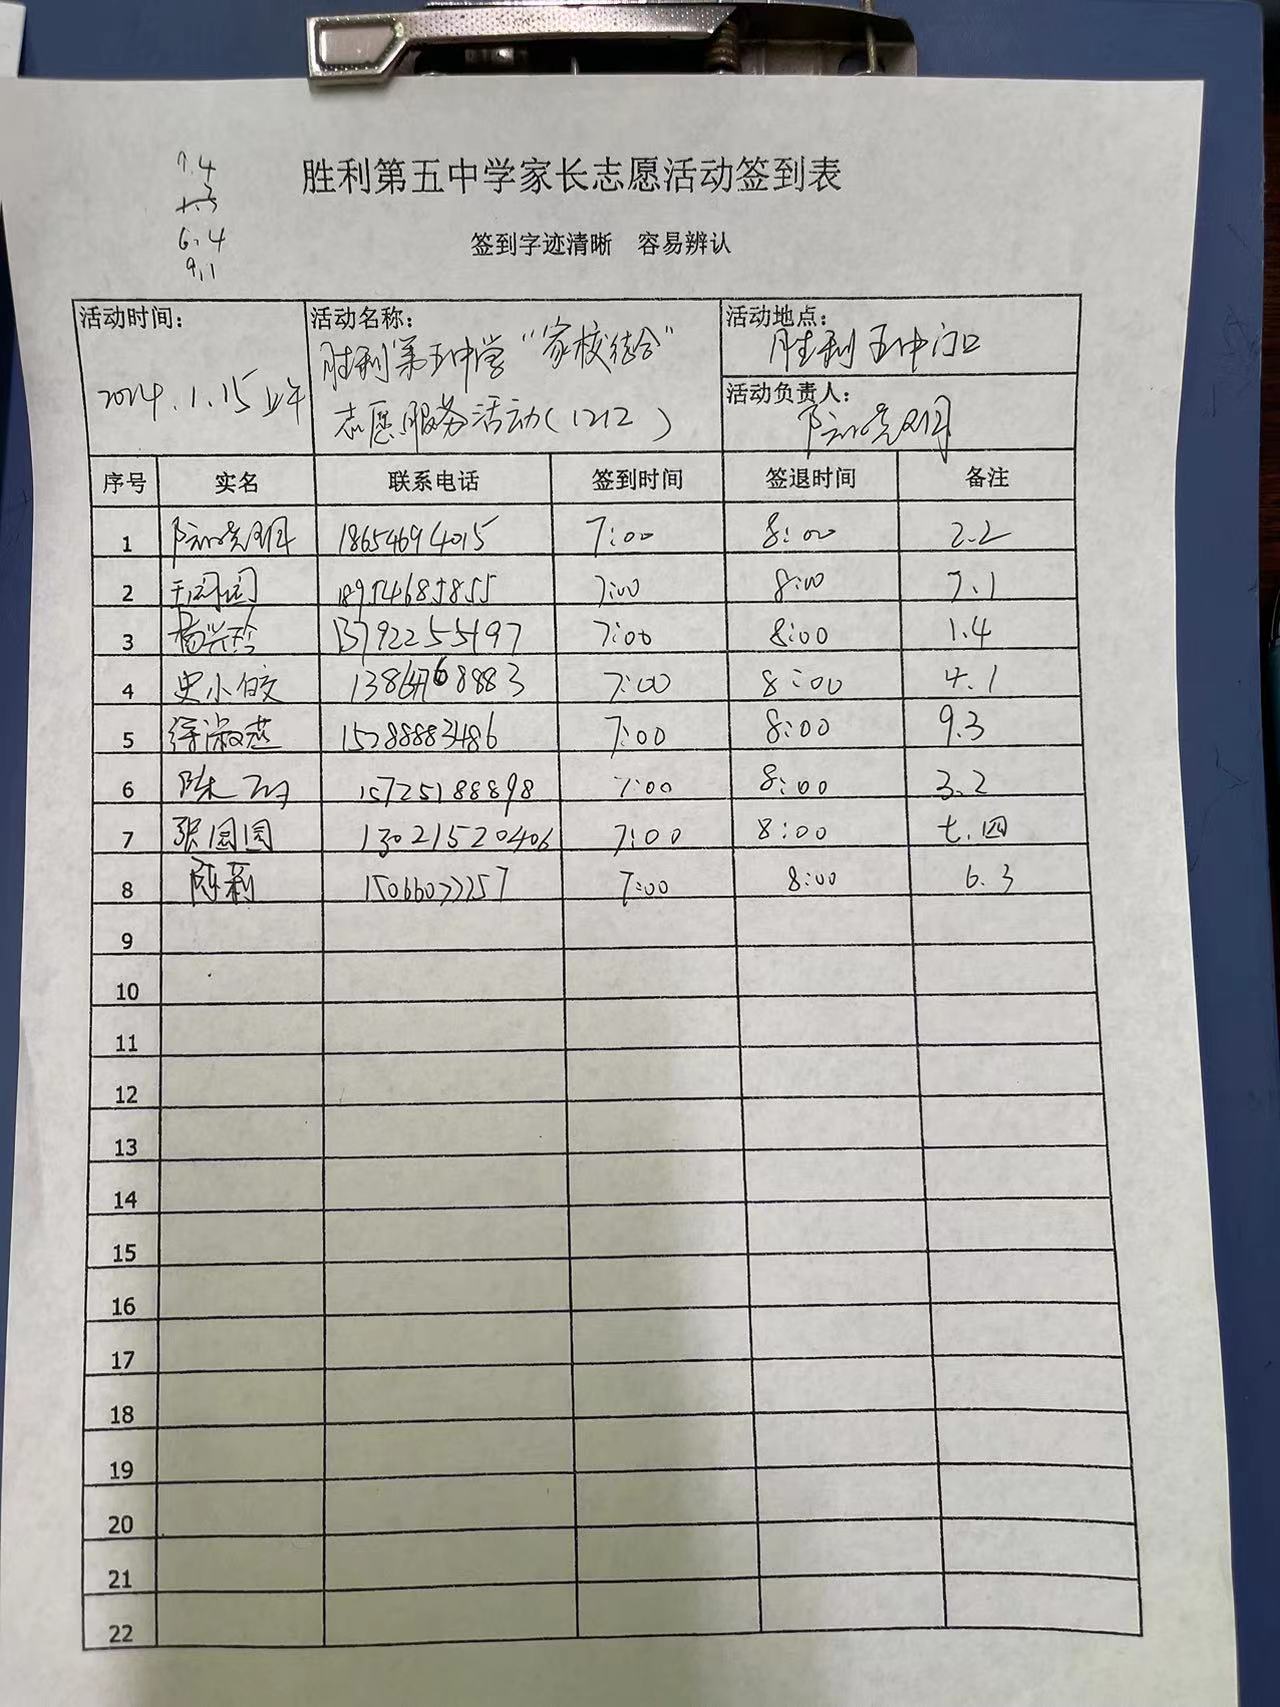 7.4
6.4
9.1
胜利第五中学家长志愿活动签到表
签到字迹清晰 容易辨认
活动时间: 2024.1.15上午
活动名称: 胜利第五中学“家校结合”
志愿服务活动(1212)
活动地点: 胜利五中门口
活动负责人:
序号 实名 联系电话 签到时间 签退时间 备注
1 18654694015 7:00 8:00 2.2
2 王园园 18954685855 7:00 8:00 7.1
3 杨兴珍 13792255197 7:00 8:00 1.4
4 史小皎 8883 7:00 8:00 4.1
5 徐淑燕 7:00 8:00 9.3
6 陈 15725188898 7:00 8:00 3.2
7 张园园 13021520406 7:00 8:00 七.四
8 7:00 8:00 6.3
9
10
11
12
13
14
15
16
17
18
19
20
21
22